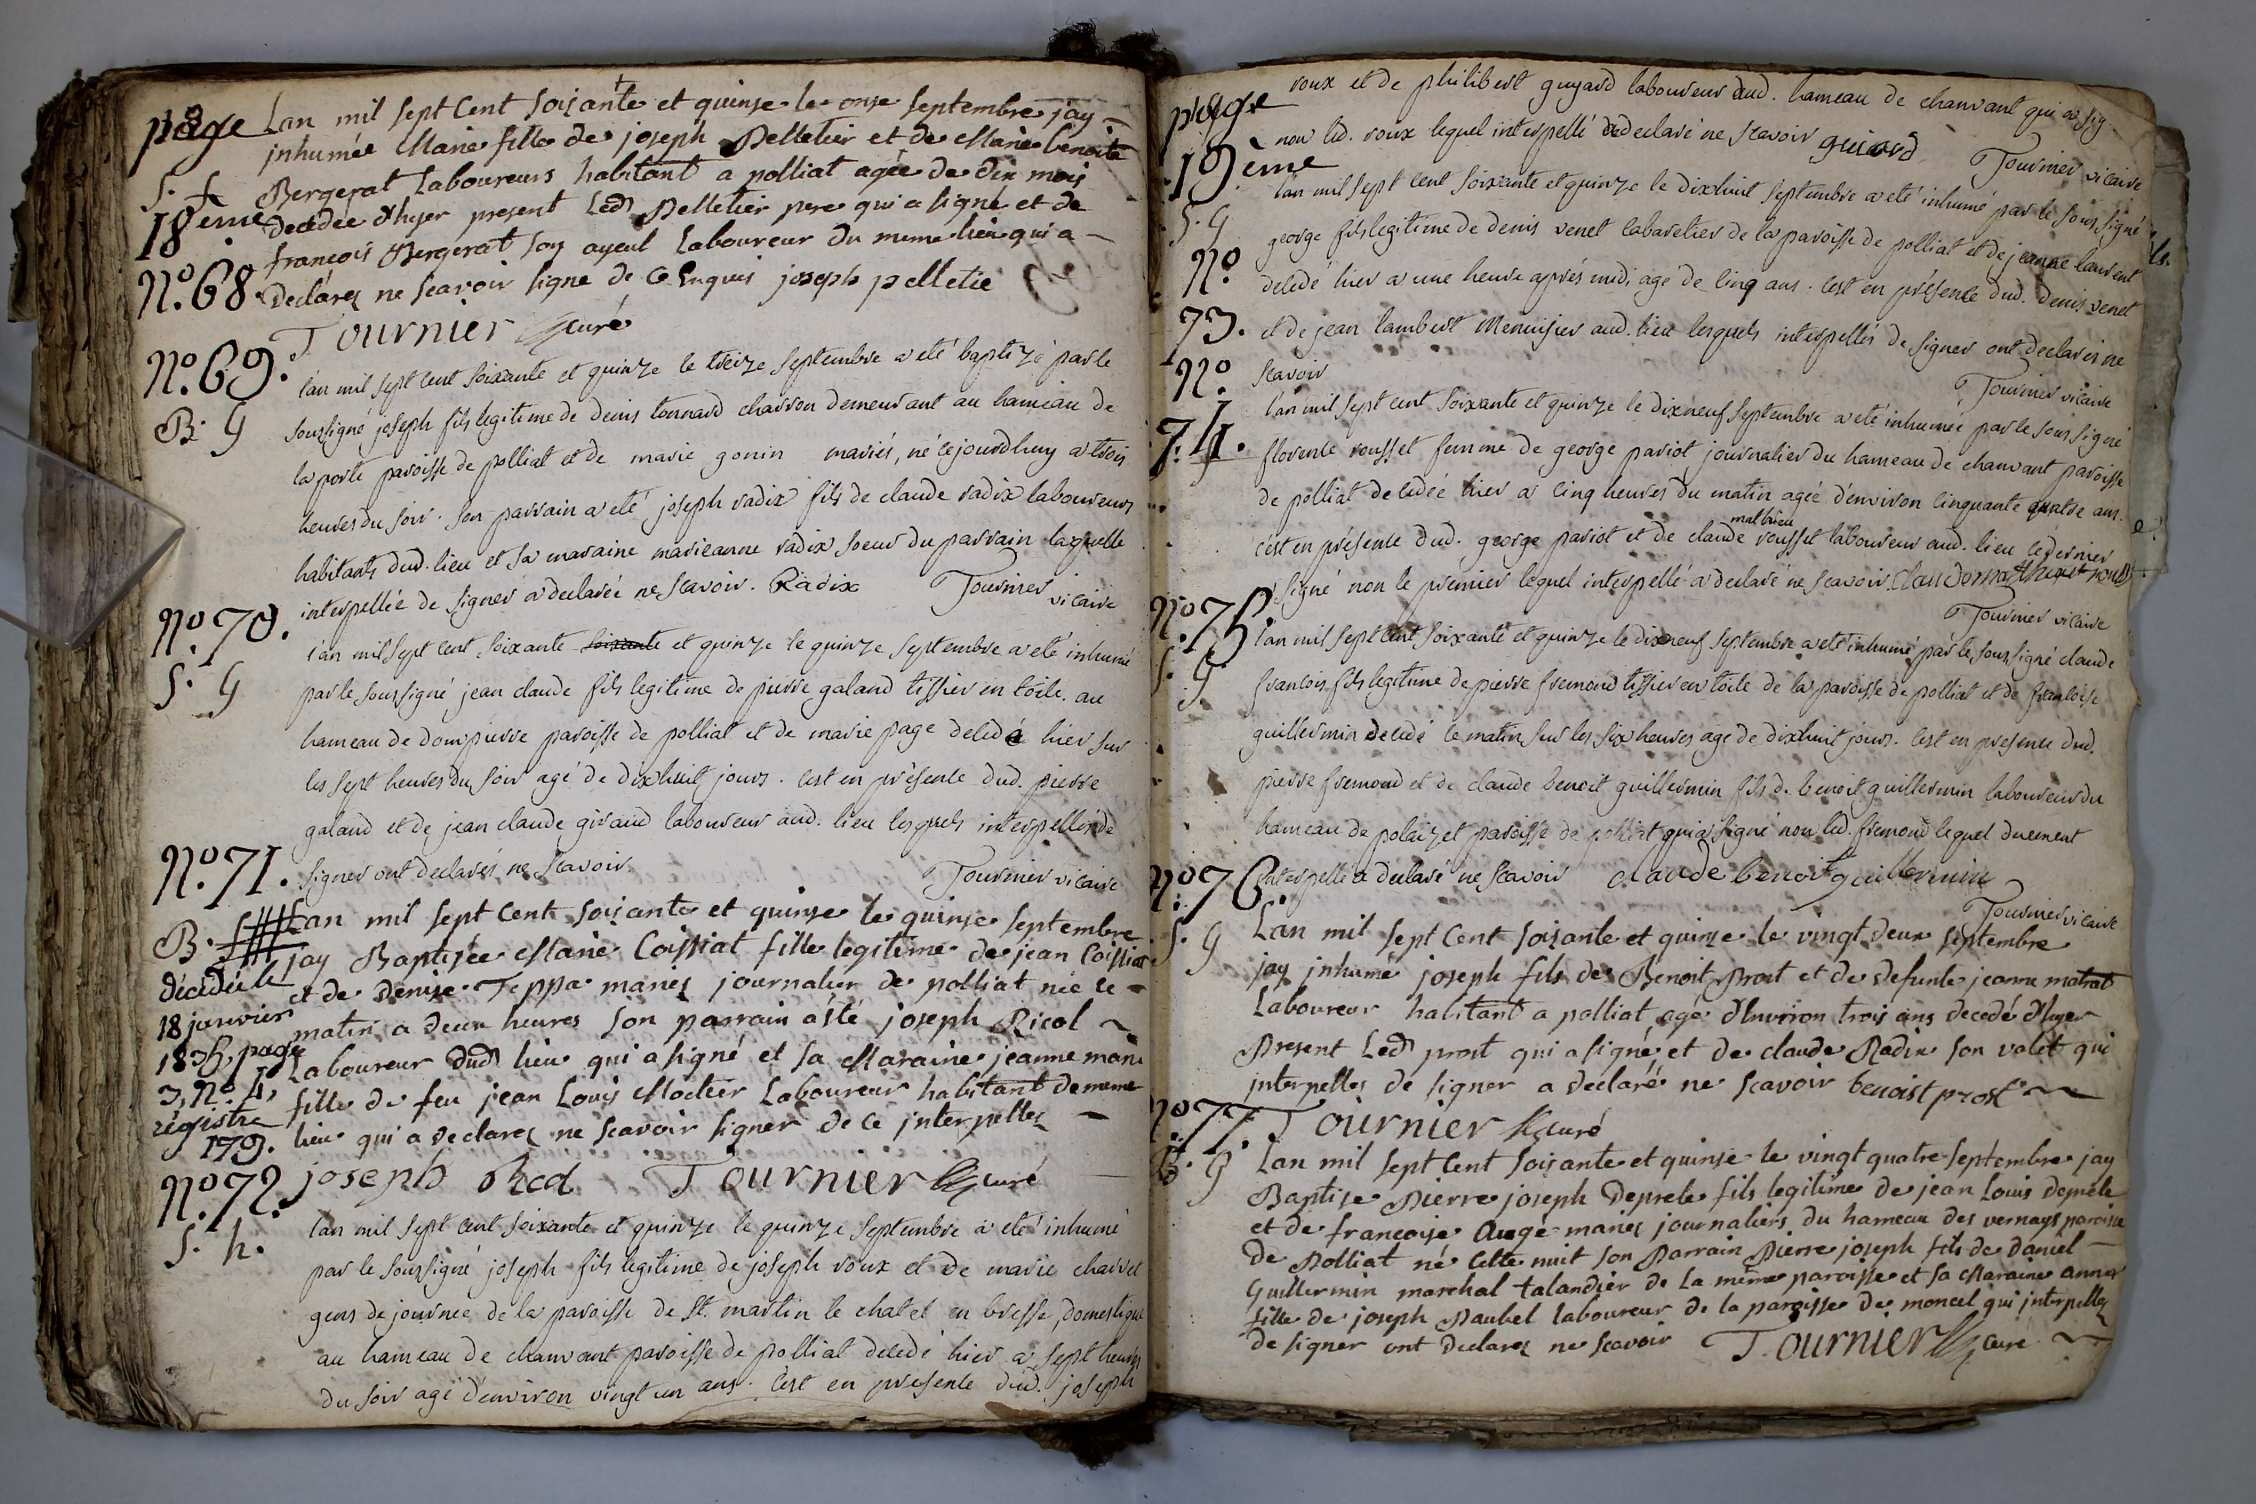 page
18ème
Lan mil sept Cent soixante et quinse le onse septembre jay
jnhumée Marie fille de joseph Pelletier et de Marie benoite
S. f
Bergerat Laboureurs habitant a polliat agée de dix mois
decedée d'hyer present Led. Pelletier pere qui a signé et de
françois Bergerat son ayeul Laboureur du meme lieu qui a
No. 68.
declarez ne scavoir signé de ce Enquis joseph pelletie
Tournier curé
No. 69.
B. G
l'an mil sept cent soixante et quinze le treize septembre a eté baptizé par le
soussigné joseph fils legitime de denis tonnard charron demeurant au hameau de
la porte paroisse de polliat et de marie gonin mariés, né cejourdhuy a trois
heures du soir. son parrain a eté joseph radix fils de claude radix laboureurs
habitants dud. lieu et sa maraine marieanne radix soeur du parrain laquelle
interpellée de signer a declaré ne scavoir. Radix Tournier vicaire
No. 70.
S. G
l'an mil sept cent soixante soixante et quinze le quinze septembre a eté inhumé
par le soussigné jean claude fils legitime de pierre galand tissier en toile au
hameau de dompierre paroisse de polliat et de marie page decedé hier sur
les sept heures du soir agé de dixhuit jours. c'est en présence dud. pierre
galand et de jean claude giraud laboureur aud. lieu lesquels interpellés de
signer ont declarés ne scavoir Tournier vicaire
No. 71.
B. f
Lan mil sept Cent soixante et quinse le quinse septembre
jay Baptisée Marie Coissiat fille legitime de jean Coissiat
décédée le
18 janvier
1835, page
3, No. 4,
régistre
179.
et de Denise Teppa mariez journalier de polliat née ce
matin a deux heures son parrain a été joseph Ricol
Laboureur dud. lieu qui a signé et sa Maraine jeanne marie
fille de feu jean Louis Moctier Laboureur habitant de meme
lieu qui a declarez ne scavoir signer de ce jnterpellez
joseph Ricol Tournier curé
No. 72.
S. h.
l'an mil sept cent soixante et quinze le quinze septembre a eté inhumé
par le soussigné joseph fils legitime de joseph roux et de marie charvet
gens de journée de la paroisse de St. martin le chatel en bresse, domestique
au hameau de chanvant paroisse de polliat decedé hier a sept heures
du soir agé d'environ vingt un ans. c'est en presence dud. joseph
page
19ème
roux et de philibert guyard laboureur aud. hameau de chanvant qui a sig
non led. roux lequel interpellé a declaré ne scavoir guiard
Tournier vicaire
S. G
No.
73.
l'an mil sept cent soixante et quinze le dixhuit septembre a eté inhumé par le soussigné
george fils legitime de denis venet cabaretier de la paroisse de polliat et de jeanne laurent
decedé hier a une heure aprés midi agé de cinq ans. c'est en présence dud. denis venet
et de jean lambert menuisier aud. lieu lesquels interpellés de signer ont declarés ne
scavoir Tournier vicaire
No.
74.
l'an mil sept cent soixante et quinze le dixneuf septembre a eté inhumée par le soussigné
florence rousset femme de george pariot journalier du hameau de chanvant paroisse
de polliat decedée hier a cinq heures du matin agée d'environ cinquante quatre ans.
c'est en présence dud. george pariot et de claude mathieu rousset laboureur aud. lieu ce dernier
signé non le premier lequel interpellé a declaré ne scavoir.
Tournier vicaire
No. 75.
S. G
l'an mil sept cent soixante et quinze le dixneuf septembre a eté inhumé par le soussigné claude
francois fils legitime de pierre fremond tissier en toile de la paroisse de polliat et de francoise
guillermin decedé ce matin sur les six heures agé de dixhuit jours. c'est en presence dud.
pierre fremond et de claude benoit guillermin fils de benoit guillermin laboureur du
hameau de polaizet paroisse de polliat qui a signé non led. fremond lequel duement
interpellé a declaré ne scavoir claude benoit guillermin
Tournier vicaire
No. 76.
S. G
Lan mil sept Cent soixante et quinse le vingt deux septembre
jay jnhumé joseph fils de Benoit Prost et de defunte jeanne matrat
Laboureur habitant a polliat agé d'Environ trois ans decedé d'hyer
Present Led. prost qui a signé et de claude Radix son valet qui
jnterpellez de signer a declaré ne scavoir benoist prost
Tournier curé
No. 77.
B. G
Lan mil sept Cent soixante et quinse le vingt quatre septembre jay
Baptise Pierre joseph Deprele fils legitime de jean Louis deprele
et de francoise Augé mariez journaliers du hameau des vernays paroisse
de Polliat né cette nuit son Parrain Pierre joseph fils de daniel
Guillermin marchal talandier de la même paroisse et sa Maraine anne
fille de joseph Paubel laboureur de la paroisse de moncel qui jnterpellez
de signer ont declarez ne scavoir Tournier curé